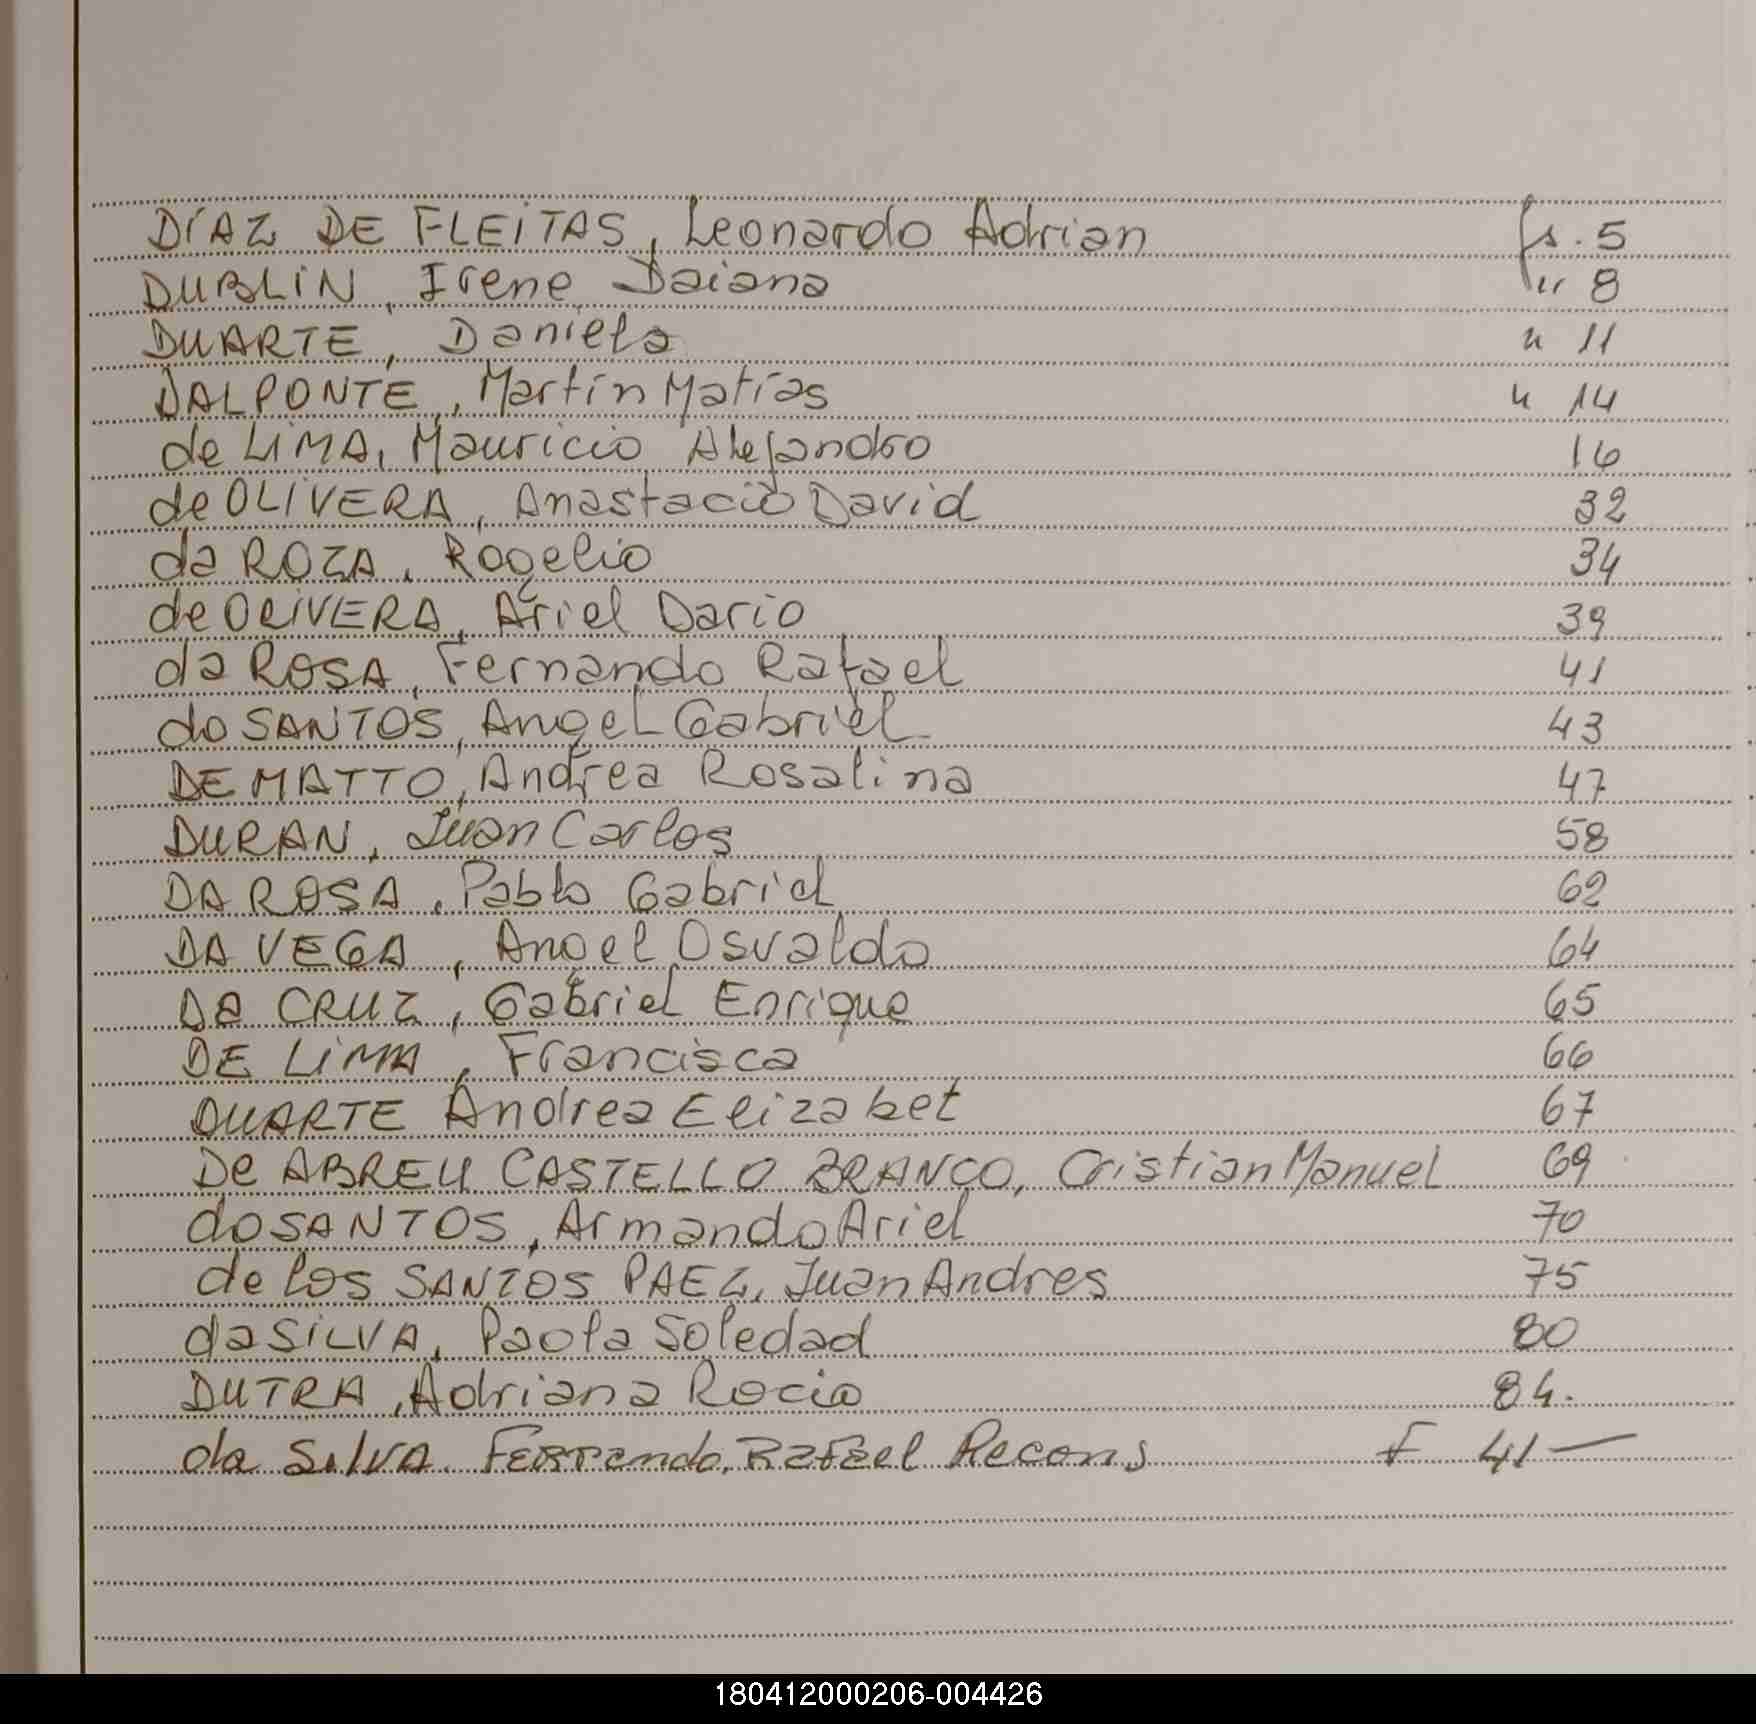 DÍAZ DE FLEITAS, Leonardo Adrian fs. 5
DUBLIN, Irene Daiana " 8
DUARTE, Daniela " 11
DALPONTE, Martín Matías " 14
de LIMA, Mauricio Alejandro 16
de OLIVERA, Anastacio David 32
da ROZA, Rogelio 34
de OLIVERA, Ariel Dario 39
da ROSA, Fernando Rafael 41
do SANTOS, Angel Gabriel 43
DE MATTO, Andrea Rosalina 47
DURAN, Juan Carlos 58
DA ROSA, Pablo Gabriel 62
DA VEGA, Angel Osvaldo 64
Da CRUZ, Gabriel Enrique 65
DE LIMA, Francisca 66
DUARTE Andrea Elizabet 67
De ABREU CASTELLO BRANCO, Cristian Manuel 69
do SANTOS, Armando Ariel 70
de los SANTOS PAEZ, Juan Andres 75
da SILVA, Paola Soledad 80
DUTRA, Adriana Rocio 84.
da SilVA. Fernando Rafael Recons F 41 —
180412000206-004426